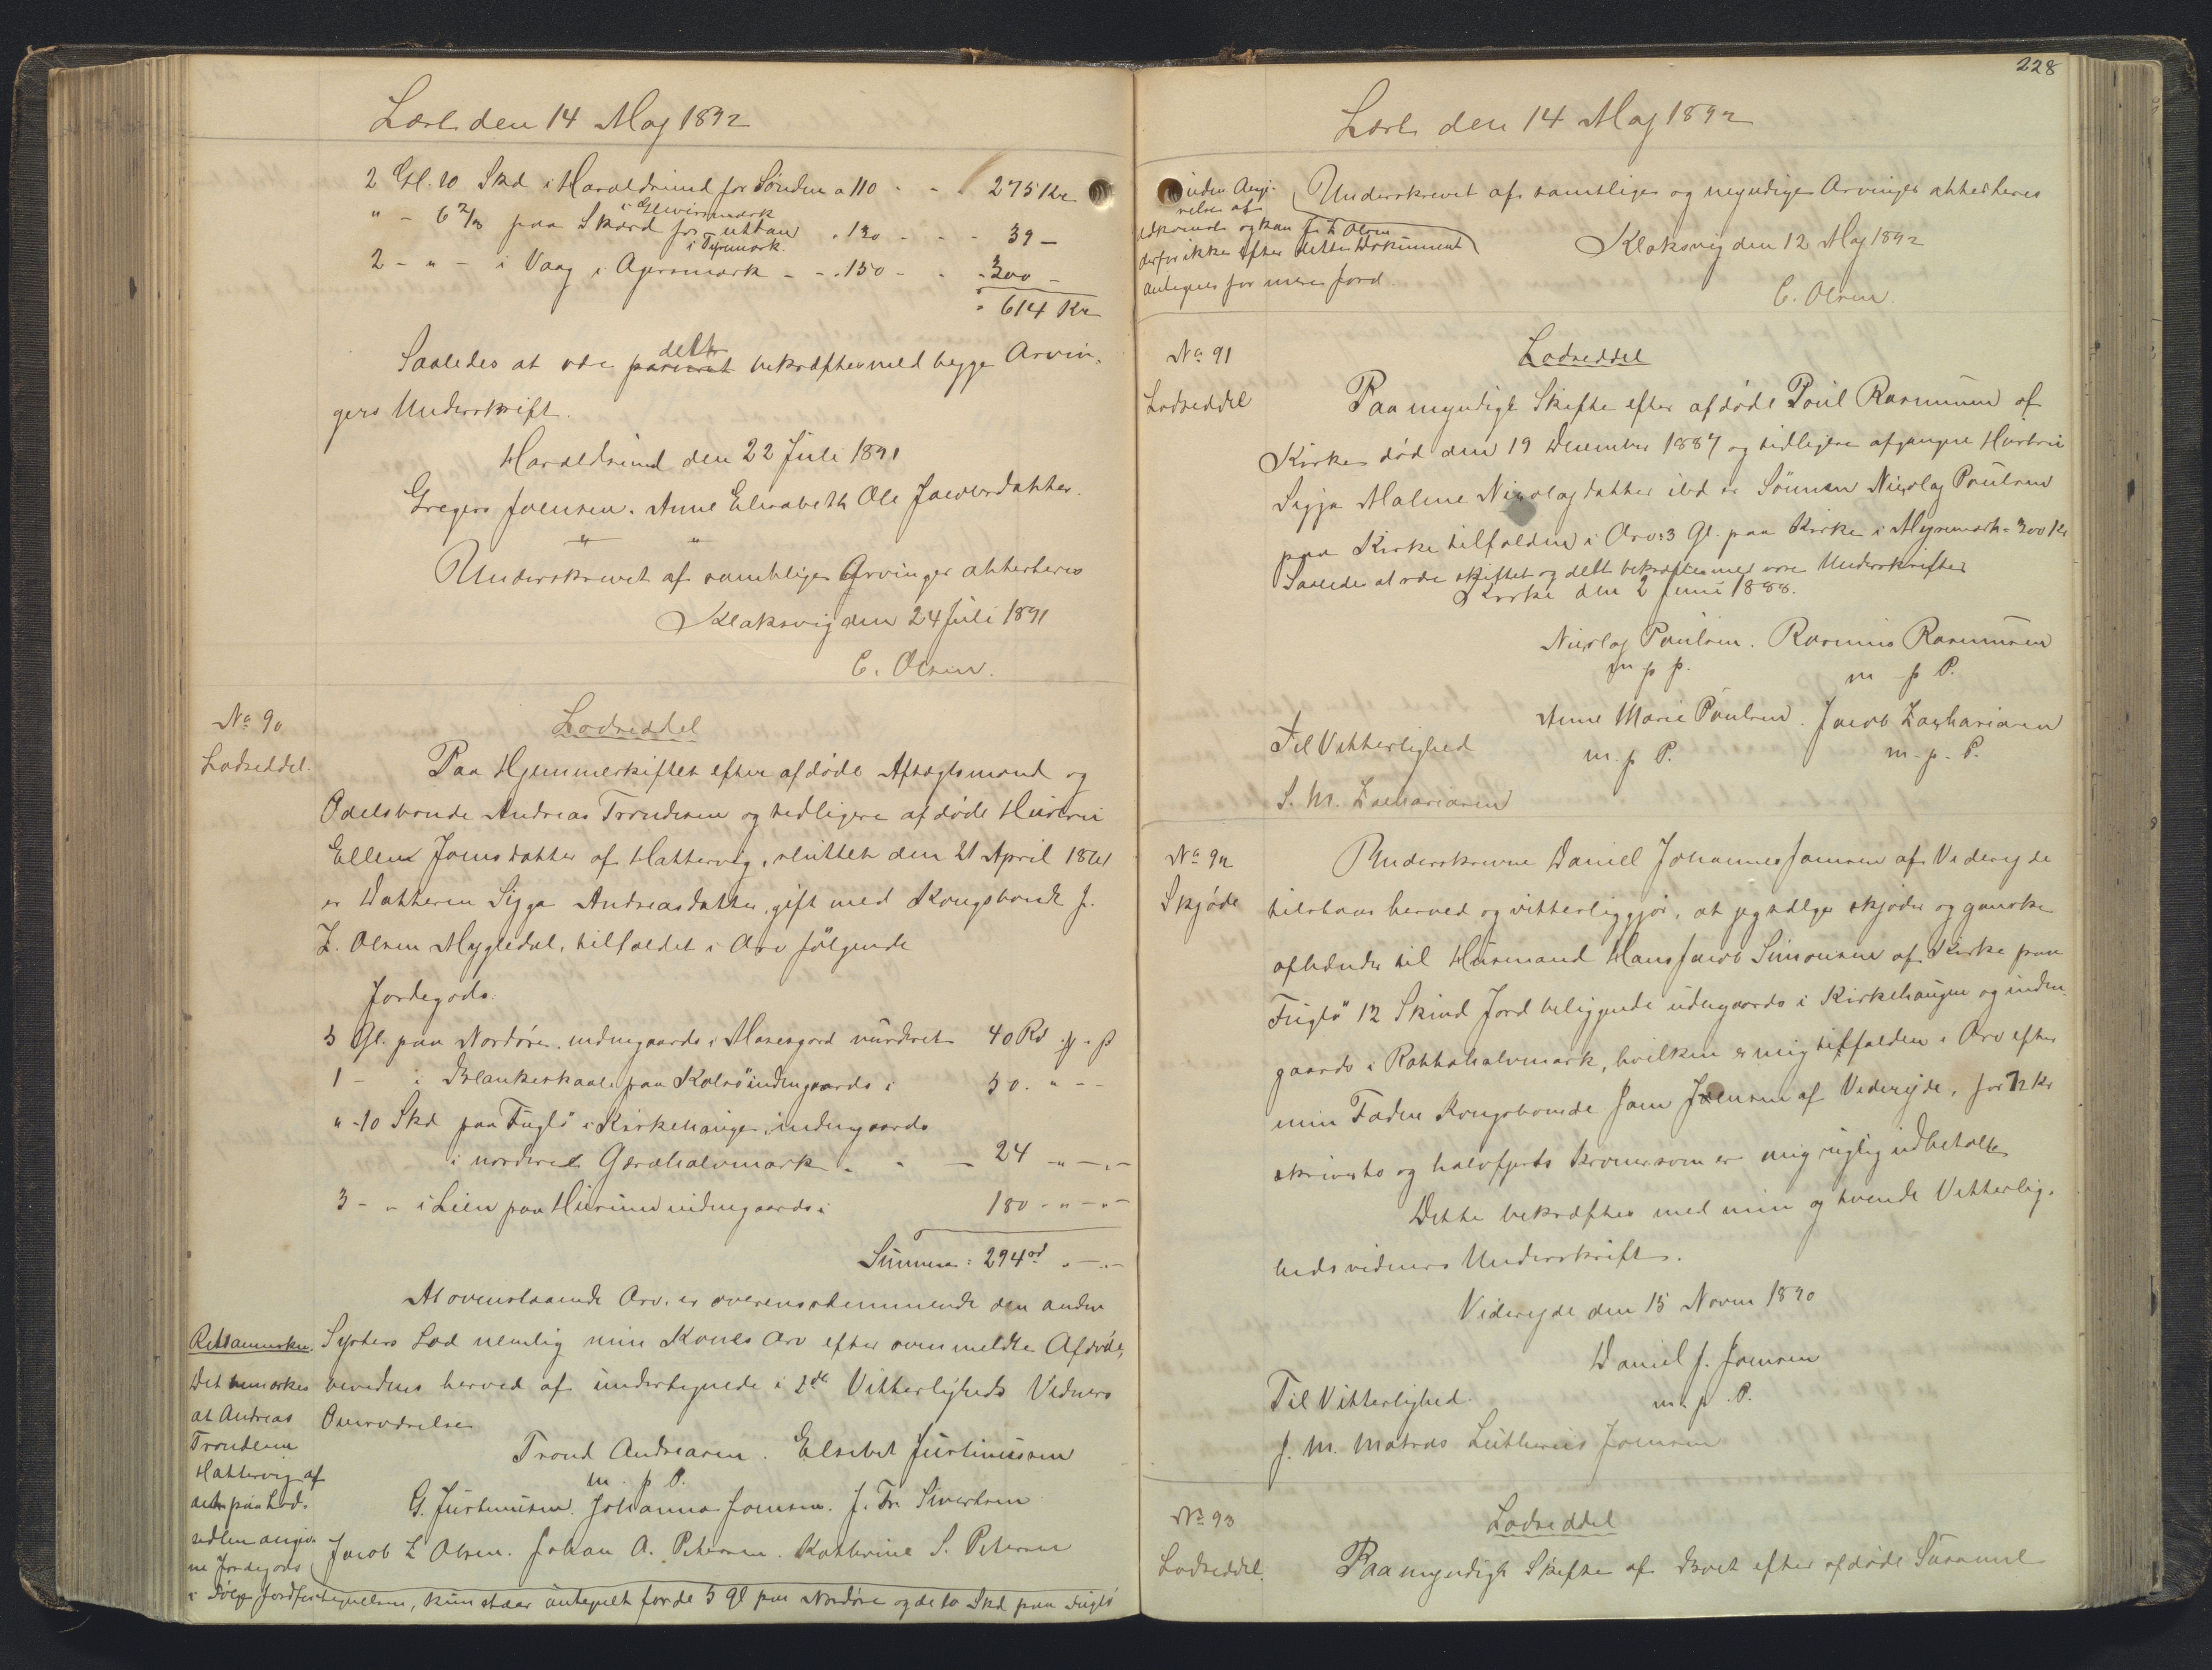 Læst den 14 Maj 1892
2 Gl. 10 Skd i Haraldsund for Sönden a 110 - - - 275 Kr
" - 6 2/3 paa Skaard for uttan . 130 - - - 39 -
i Tyrnmark.
2 - " - i Vaag i Agersmark - - . 150 - - - 300 -
= 614 Kr
dette
Saaledes at være passeret bekræftes med begge Arvin-
gers Underskrift.
Haraldsund den 22 Juli 1891
Gregers Joensen. Anne Elisabeth Ole Jacobsdatter.
" "
Underskrevet af samtlige Arvinger attesteres
Klaksvig den 24 Juli 1891
C. Olsen.
No 90
Lodseddel.
Lodseddel
Paa Hjemmeskiftet efter afdöde Aftægtsmand og
Odelsbonde Andreas Trondesen og tidligere afdöde Hustru
Ellen Joensdatter af Hattervig, sluttet den 21 April 1861
er Datteren Sigga Andreasdatter, gift med Kongsbonde J.
Z. Olsen Mygledal, tilfaldet i Arv fölgende
Jordegods.
5 Gl. paa Nordöre indengaards i Mosesgord vurderet 40 Rd
1 - i Blankeskaale paa Kalsö indengaards i 50. " - -
" - 10 Skd paa Fuglö i Kirkehauge, indengaards
i nordere Gærahalvmark - - - 24 - " - " -
3 - " i Lien paa Husum indengaards i 180 - " - " -
Summa: 294 rd " - " -
At ovenstaaende Arv er overensstemmende den anden
Systers Lod nemlig min Kones Arv efter ovenmeldte Afdöde,
bevidnes herved af undertegnede i 2de Vitterligheds Vidners
Overværelse
Trond Andreasen. Elsebet Justinussen
m. p P.
G. Justinusen. Johannes Joensen. J. Fr. Sivertsen
Jacob Z Olsen. Johan A. Petersen. Kathrine S. Petersen
Retsanmærkn.
Det bemærkes
at Andreas
Trondesen
Hattervig af
det paa Lod-
sedlen angiv-
ne Jordegods
i Fölge Jordfortegnelsen, kun staar antegnet for de 5 Gl paa Nordöre og de 10 Skd paa Fuglö
228
Læst den 14 Maj 1892
uden Angi-
velse af
Adkomst og kan J. Z Olsen
derfor ikke efter dette Dokument
antegnes for mere Jord.
Underskrevet af samtlige og myndige Arvinger attesteres
Klaksvig den 12 Maj 1892
C. Olsen.
No 91
Lodseddel
Lodseddel
Paa myndigt Skifte efter afdöde Poul Rasmussen af
Kirke död den 19 December 1887 og tidligere afgangne Hustru
Sigja Malene Nicolajdatter ibd er Sönnen Nicolaj Poulsen
paa Kirke tilfalden i Arv: 3 Gl. paa Kirke i Myremark = 300 Kr
Saaledes at være skiftet og delt bekræftes med vore Underskrifter
Kirke den 2 Juni 1888.
Nicolaj Poulsen. Rasmus Rasmussen
m p p. m - p P.
Anne Marie Poulsen. Jacob Zachariasen
m. p P. m - p - P.
Til Vitterlighed
S. M. Zachariasen
No 92
Skjöde
Underskrevne Daniel Johannes Joensen af Videreide
tilstaar herved og vitterliggjör, at jeg sælger skjöder og ganske
afhænder til Husmand Hans Jacob Simonsen af Kirke paa
Fuglö 12 Skind Jord beliggende udengaards i Kirkehaugen og inden-
gaards i Rættahalvmark, hvilken er mig tilfalden i Arv efter
min Fader Kongsbonde Joen Joensen af Videreide, for 72 Kr
skriver to og halvfjerds Kroner som er mig rigtig udbetalte
Dette bekræftes med min og tvende Vitterlig-
heds vidners Underskrift.
Videreide den 15 Novm 1890
Daniel J. Joensen
m. p. P.
Til Vitterlighed.
J. M. Matras Lutherus Joensen
No 93
Lodseddel.
Lodseddel
Paa myndigt Skifte af Boet efter afdöde Susanne